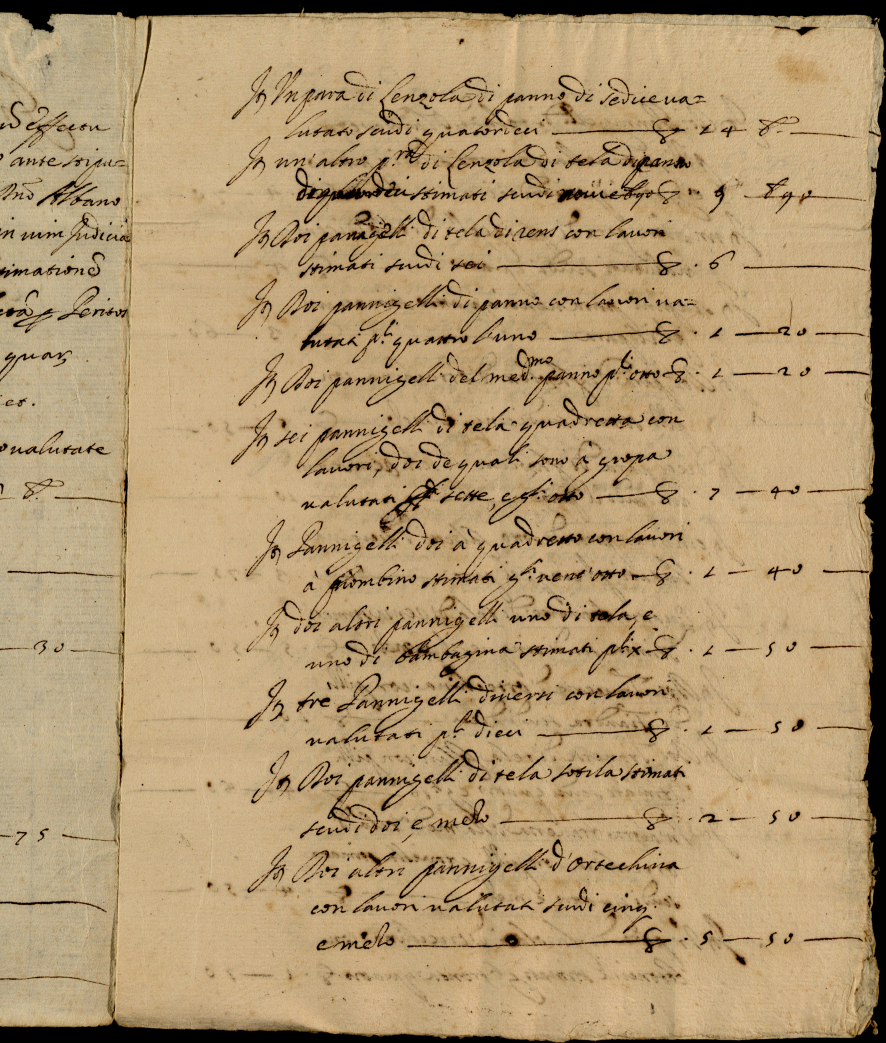 effectu
ante stipu=
Albano
in vim Judicia
timatione
Peritos
quar
et.
valutate
30
75
It Un para di Lenzola di panno di sedice va=
lutato scudi quatordeci — 14
It un altro p.ro di Lenzola di tela di panno
stimati scudi nove — 9 — 90
It Doi pannigelli di tela di rens con lavori
stimati scudi sei — 6 —
It Doi pannigelli di panno con lavori va=
lutati pli quattro l'uno — 1 — 20 —
It Doi pannigelli del med.mo panno pli otto — 1 — 20 —
It sei pannigelli di tela quadretta con
lavori, doi de quali sono à gropa
valutati sette, otto — 7 — 40 —
It Pannigelli doi à quadretto con lavori
à piombino stimati gli vent'otto — 1 — 40 —
It doi altri pannigelli uno di tela, e
uno di bambagina stimati pli x — 1 — 50 —
It trè Pannigelli diversi con lavori
valutati pli dieci — 1 — 50 —
It Doi pannigelli di tela sotila stimati
scudi doi, e mezo — 2 — 50 —
It Doi altri pannigelli d'ortechina
con lavori valutati scudi cinq.
e mezo — 5 — 50 —